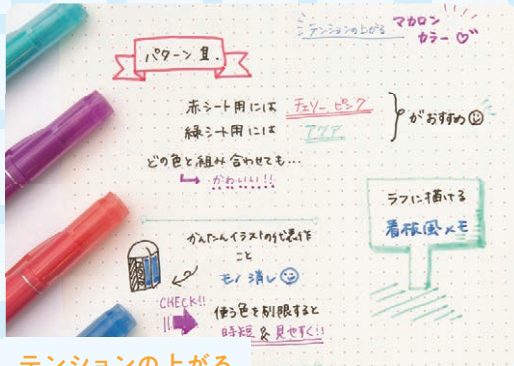 テンションの上がる マカロン
カラー
パターン皿.
赤シート用には チェリーピンク
緑シート用には アクア
がおすすめ
どの色と組み合わせても…
かわいい!!
ラフに描ける
看板風メモ
かんたんイラストの代表作
こと
モノ消し
CHECK!!
使う色を制限すると
時短 & 見やすく!!
テンションの上がる